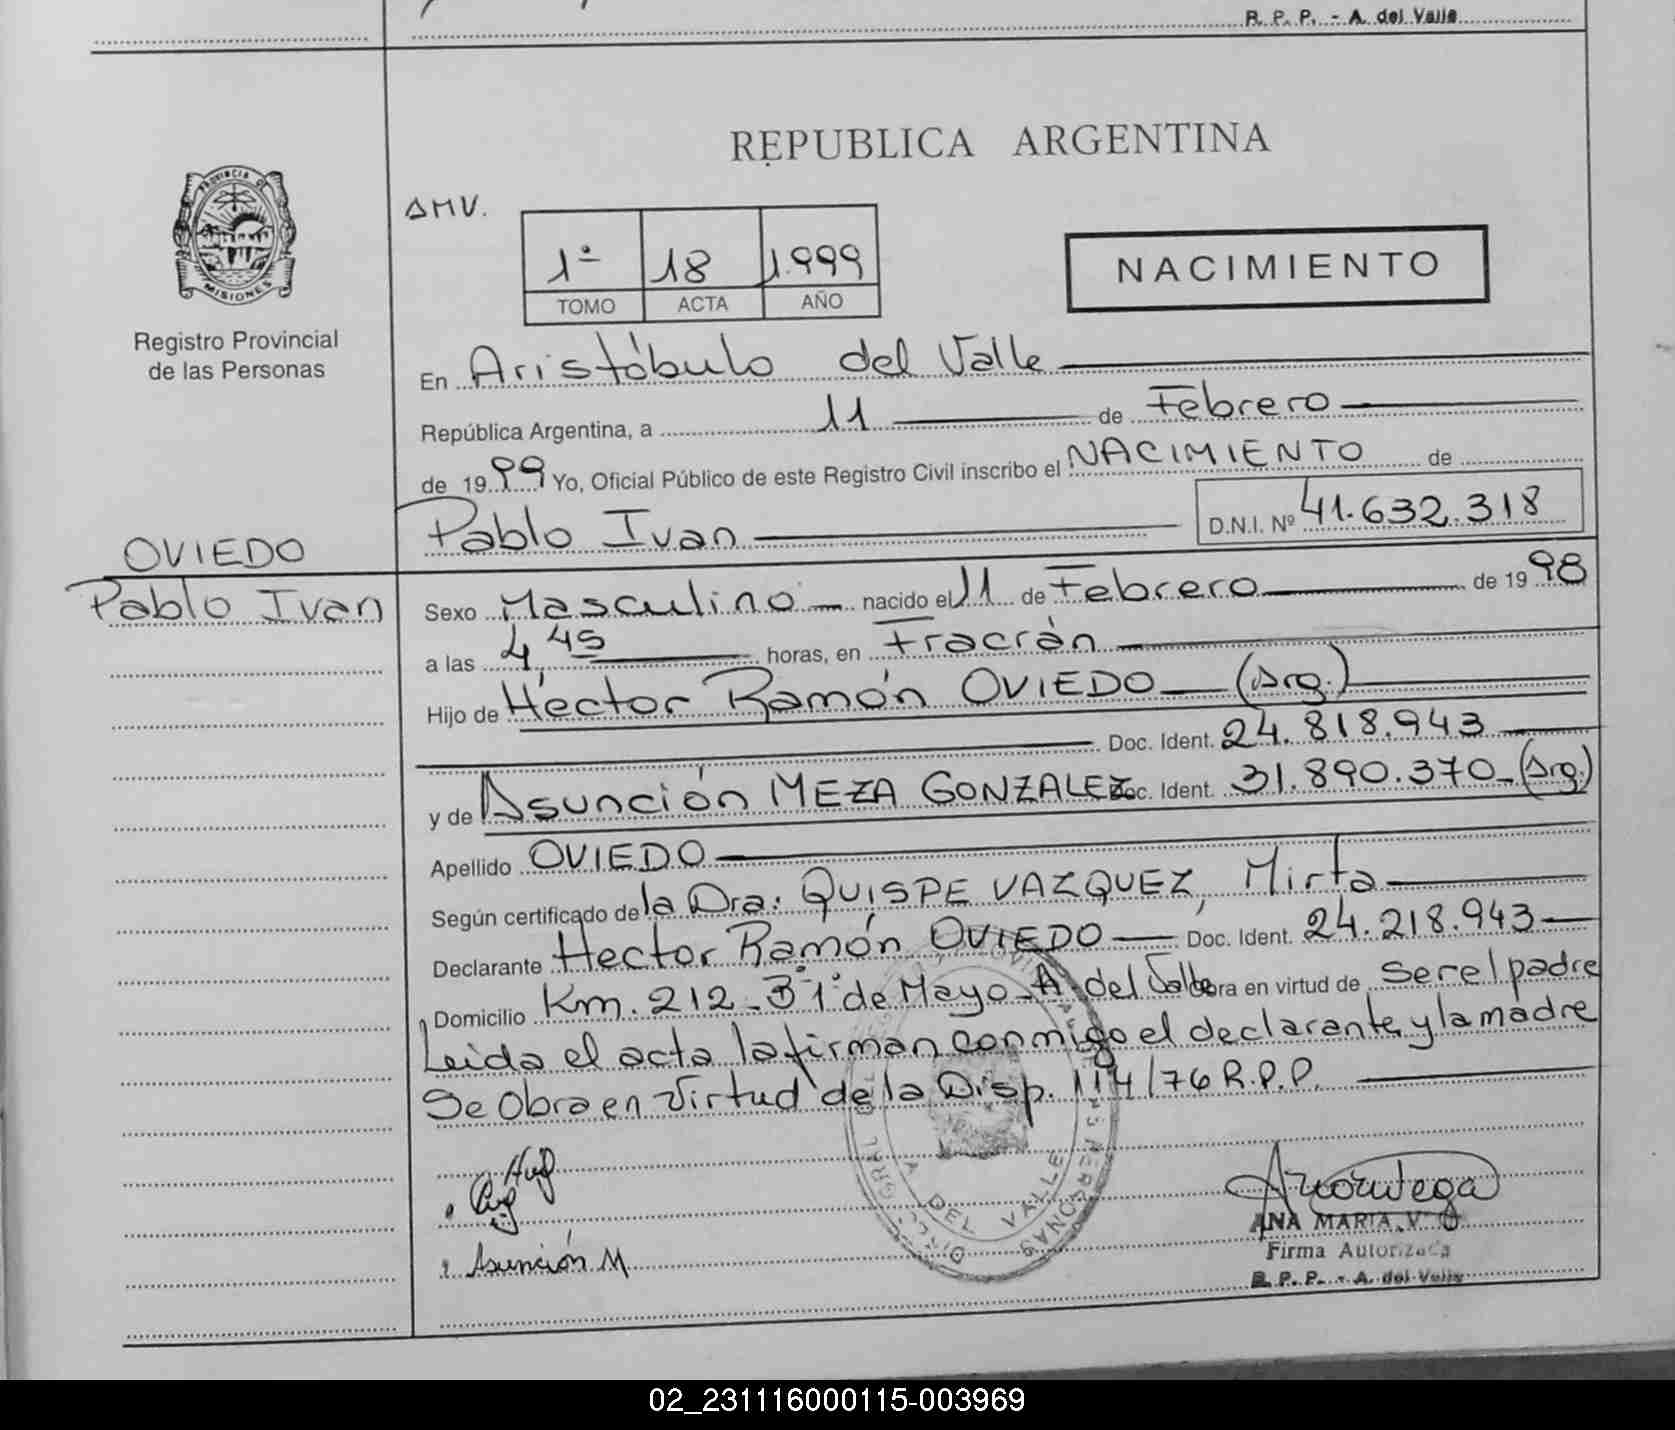 R. P. P. - A. del Valle
REPUBLICA ARGENTINA
PROVINCIA DE
MISIONES
AMV.
1º 18 1.999
TOMO ACTA AÑO
NACIMIENTO
Registro Provincial
de las Personas
En Aristóbulo del Valle
República Argentina, a 11 de Febrero
de 1999 Yo, Oficial Público de este Registro Civil inscribo el NACIMIENTO de
Pablo Ivan D.N.I. Nº 41.632.318
OVIEDO
Pablo Ivan
Sexo Masculino nacido el 11 de Febrero de 1998
a las 4,45 horas, en Fracrán
Hijo de Héctor Ramón OVIEDO (Arg.)
Doc. Ident. 24.818.943
y de Asunción MEZA GONZALEZ Doc. Ident. 31.890.370 (Arg.)
Apellido OVIEDO
Según certificado de la Dra: QUISPE VAZQUEZ, Mirta
Declarante Hector Ramón OVIEDO Doc. Ident. 24.218.943
Domicilio Km. 212 - 31 de Mayo - A. del Valle obra en virtud de ser el padre
Leida el acta la firman conmigo el declarante y la madre
Se Obra en Virtud de la Disp. 114/76 R.P.P.
A DEL VALLE
Asunción M
ANA MARIA V
Firma Autorizada
R. P. P. - A. del Valle
02_231116000115-003969